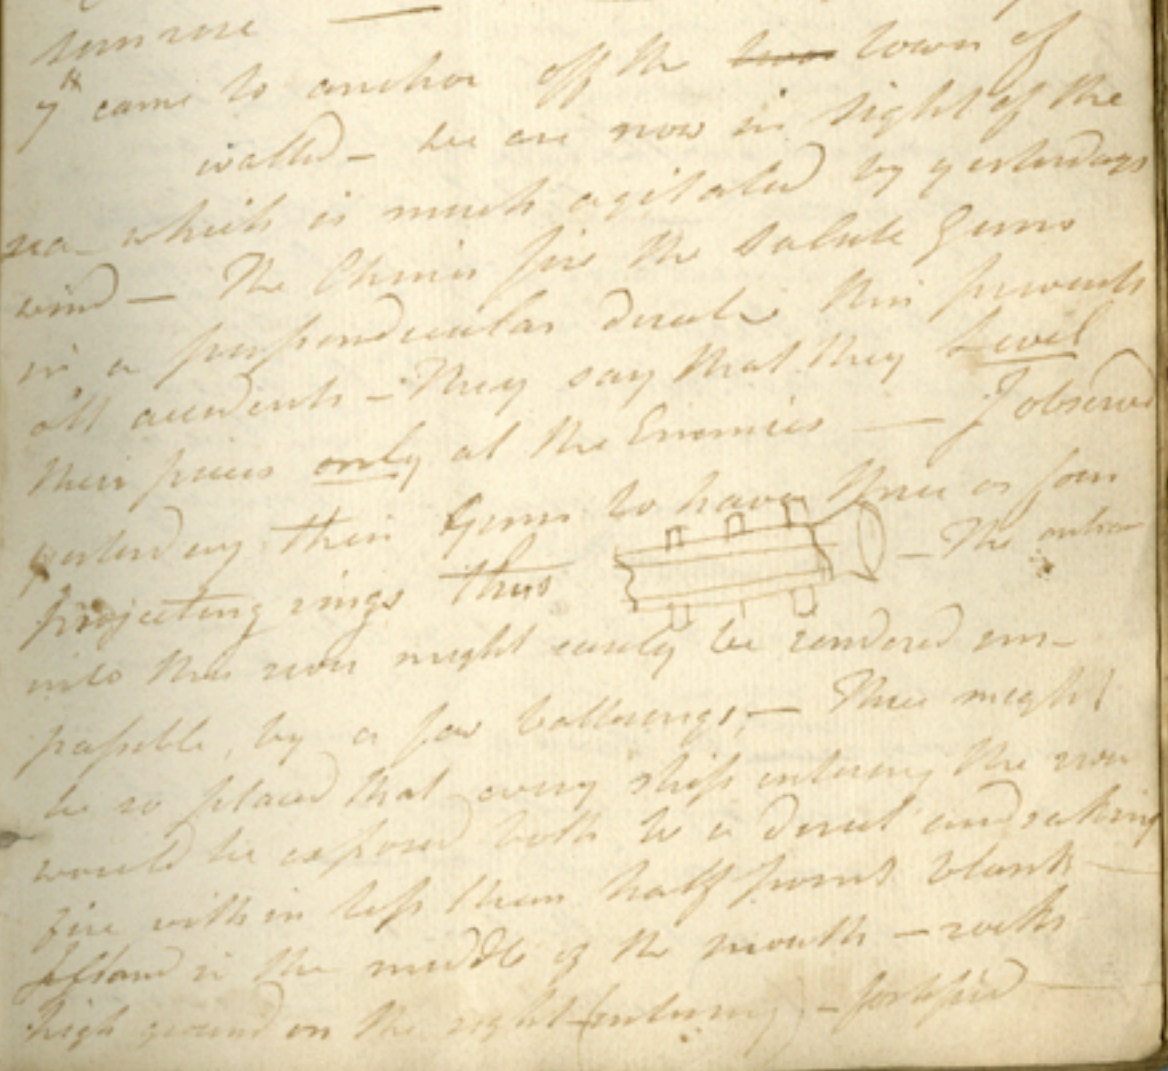 sun rise —
7th came to anchor off the town of
walled – we are now in sight of the
sea – which is much agitated by yesterdays
wind – The Chinese fire the Salute Guns
in a perpendicular this prevents
all accidents – They say that they Level
their pieces only at the Enemies — I observed
yesterday their Guns to have three or four
projecting rings thus – The
into this river might easily be rendered im-
passible, by a few batteries, – These might
be so placed that every ship entering the river
would be exposed both to a direct and raking
fire within less than half point blank –
Island in the middle of the mouth – rocks
high ground on the right (entering) – fortified —